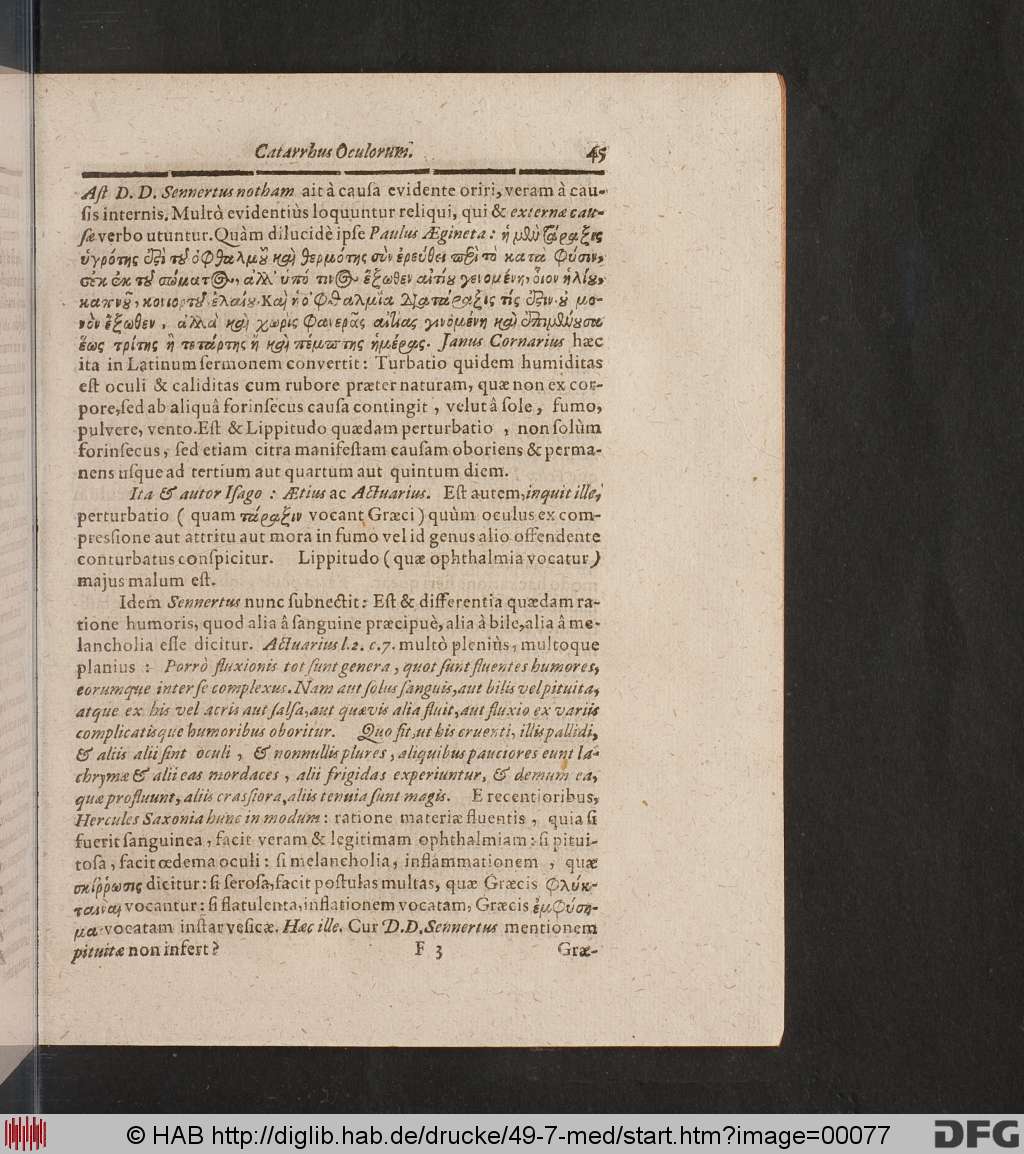 Catarrhus Oculorum. 45
Aſt D. D. Sennertus notham ait à cauſa evidente oriri, veram à cau-
ſis internis. Multò evidentiùs loquuntur reliqui, qui & externæ cau-
ſæ verbo utuntur. Quàm dilucidè ipſe Paulus Ægineta: ἡ μὲν τάραξις
ὑγρότης ἐπὶ τοῦ ὀφθαλμοῦ καὶ θερμότης σὺν ἐρεύθει παρὰ τὸ κατὰ φύσιν,
σἐκ ἐκ τοῦ σώματος, ἀλλ' ὑπό τινος ἔξωθεν αἰτίου γενομένη, οἷον ἡλίου,
καπνοῦ, κονιορτοῦ ἐλαίου. Καὶ ἡ ὀφθαλμία τάραξίς τίς ἐστιν οὐ μο-
νὸν ἔξωθεν, ἀλλὰ καὶ χωρὶς φανερᾶς αἰτίας γινομένη καὶ ἐπιμένουσα
ἕως τρίτης ἢ τετάρτης ἢ καὶ πέμπτης ἡμέρας. Janus Cornarius hæc
ita in Latinum ſermonem convertit: Turbatio quidem humiditas
eſt oculi & caliditas cum rubore præter naturam, quæ non ex cor-
pore, ſed ab aliquâ forinſecus cauſa contingit, velut â ſole, fumo,
pulvere, vento. Eſt & Lippitudo quædam perturbatio, non ſolùm
forinſecus, ſed etiam citra manifeſtam cauſam oboriens & perma-
nens uſque ad tertium aut quartum aut quintum diem.
Ita & autor Iſago: Ætius ac Actuarius. Eſt autem, inquit ille,
perturbatio (quam τάραξιν vocant Græci) quùm oculus ex com-
preſſione aut attritu aut mora in fumo vel id genus alio offendente
conturbatus conſpicitur. Lippitudo (quæ ophthalmia vocatur)
majus malum eſt.
Idem Sennertus nunc ſubnectit: Eſt & differentia quædam ra-
tione humoris, quod alia â ſanguine præcipuè, alia à bile, alia â me-
lancholia eſſe dicitur. Actuarius l. 2. c. 7. multò pleniùs, multoque
planius: Porrò fluxionis tot ſunt genera, quot ſunt fluentes humores,
eorumque inter ſe complexus. Nam aut ſolus ſanguis, aut bilis vel pituita,
atque ex his vel acris aut ſalſa, aut quævis alia fluit, aut fluxio ex variis
complicatisque humoribus oboritur. Quo fit, ut his cruenti, illis pallidi,
& aliis alii ſint oculi, & nonnullis plures, aliquibus pauciores eunt la-
chrymæ & alii eas mordaces, alii frigidas experiuntur, & demum ea,
quæ profluunt, aliis craſſiora, aliis tenuia ſunt magis. E recentioribus,
Hercules Saxonia hunc in modum: ratione materiæ fluentis, quia ſi
fuerit ſanguinea, facit veram & legitimam ophthalmiam: ſi pitui-
toſa, facit œdema oculi: ſi melancholia, inflammationem, quæ
σκίῤῥωσις dicitur: ſi ſeroſa, facit poſtulas multas, quæ Græcis φλύκ-
ταιναι vocantur: ſi flatulenta, inflationem vocatam, Græcis ἐμφύση-
μα vocatam inſtar veſicæ. Hæc ille. Cur D. D. Sennertus mentionem
pituitæ non infert? F 3 Græ-
© HAB http://diglib.hab.de/drucke/49-7-med/start.htm?image=00077
DFG